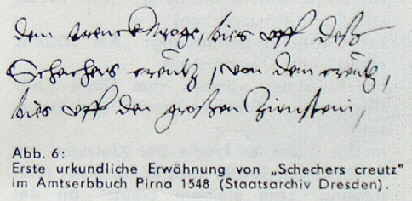 dem trencktroge, bies uff deß
Schechers creutz, von dem creutz,
bies uff den großen Zirnstein,
Abb. 6:
Erste urkundliche Erwähnung von „Schechers creutz"
im Amtserbbuch Pirna 1548 (Staatsarchiv Dresden).